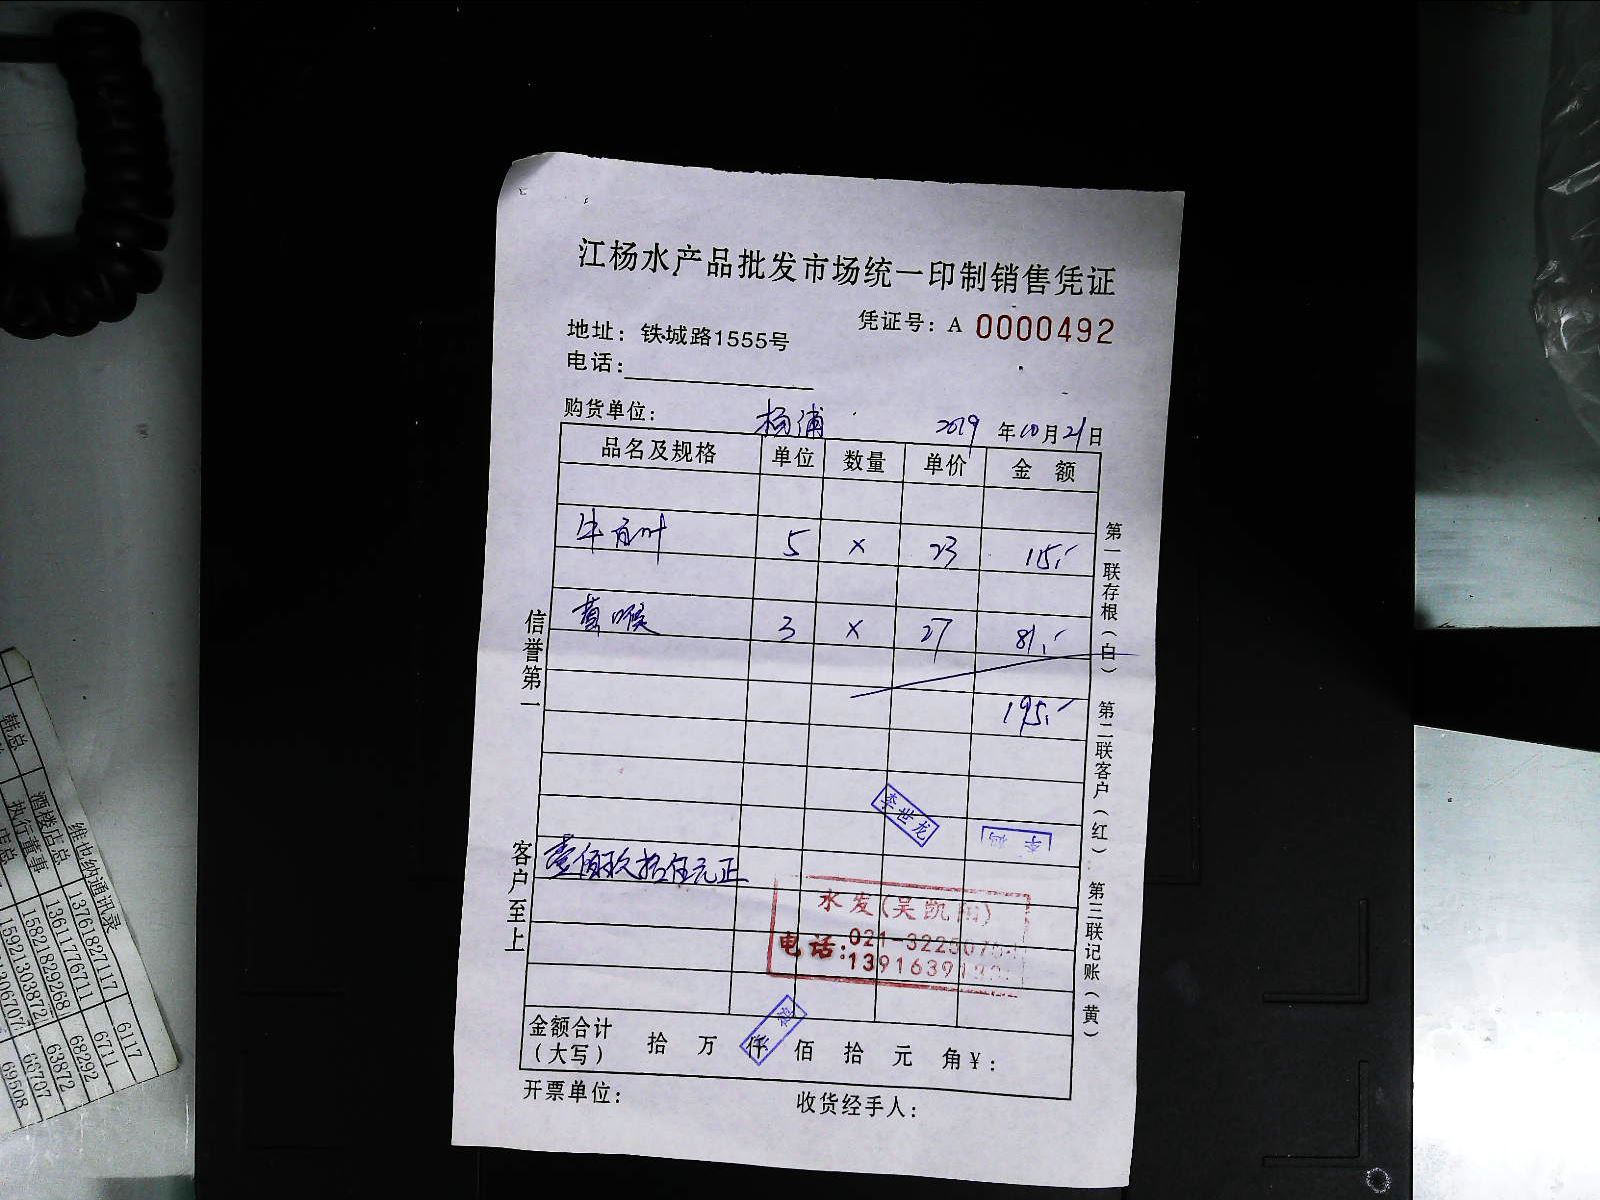 江杨水产品批发市场统一印制销售凭证
凭证号：A 0000492
地址：铁城路1555号
电话：
购货单位： 杨浦 2019年10月21日
品名及规格 单位 数量 单价 金 额
牛百叶 5 × 23 115.-
黄喉 3 × 27 81.-
195.-
壹佰玖拾伍元正
李世龙
水发(吴凯
电话：021-3225
1391639
金额合计（大写） 拾 万 仟 佰 拾 元 角￥：
开票单位： 收货经手人：
信誉第一
客户至上
第一联存根（白） 第二联客户（红） 第三联记账（黄）
维也纳通讯录
韩总 酒楼店总 13761827117 6117
执行董事 13611776711 6711
店总 15821829268 68292
15921303872 63872
66707
69508